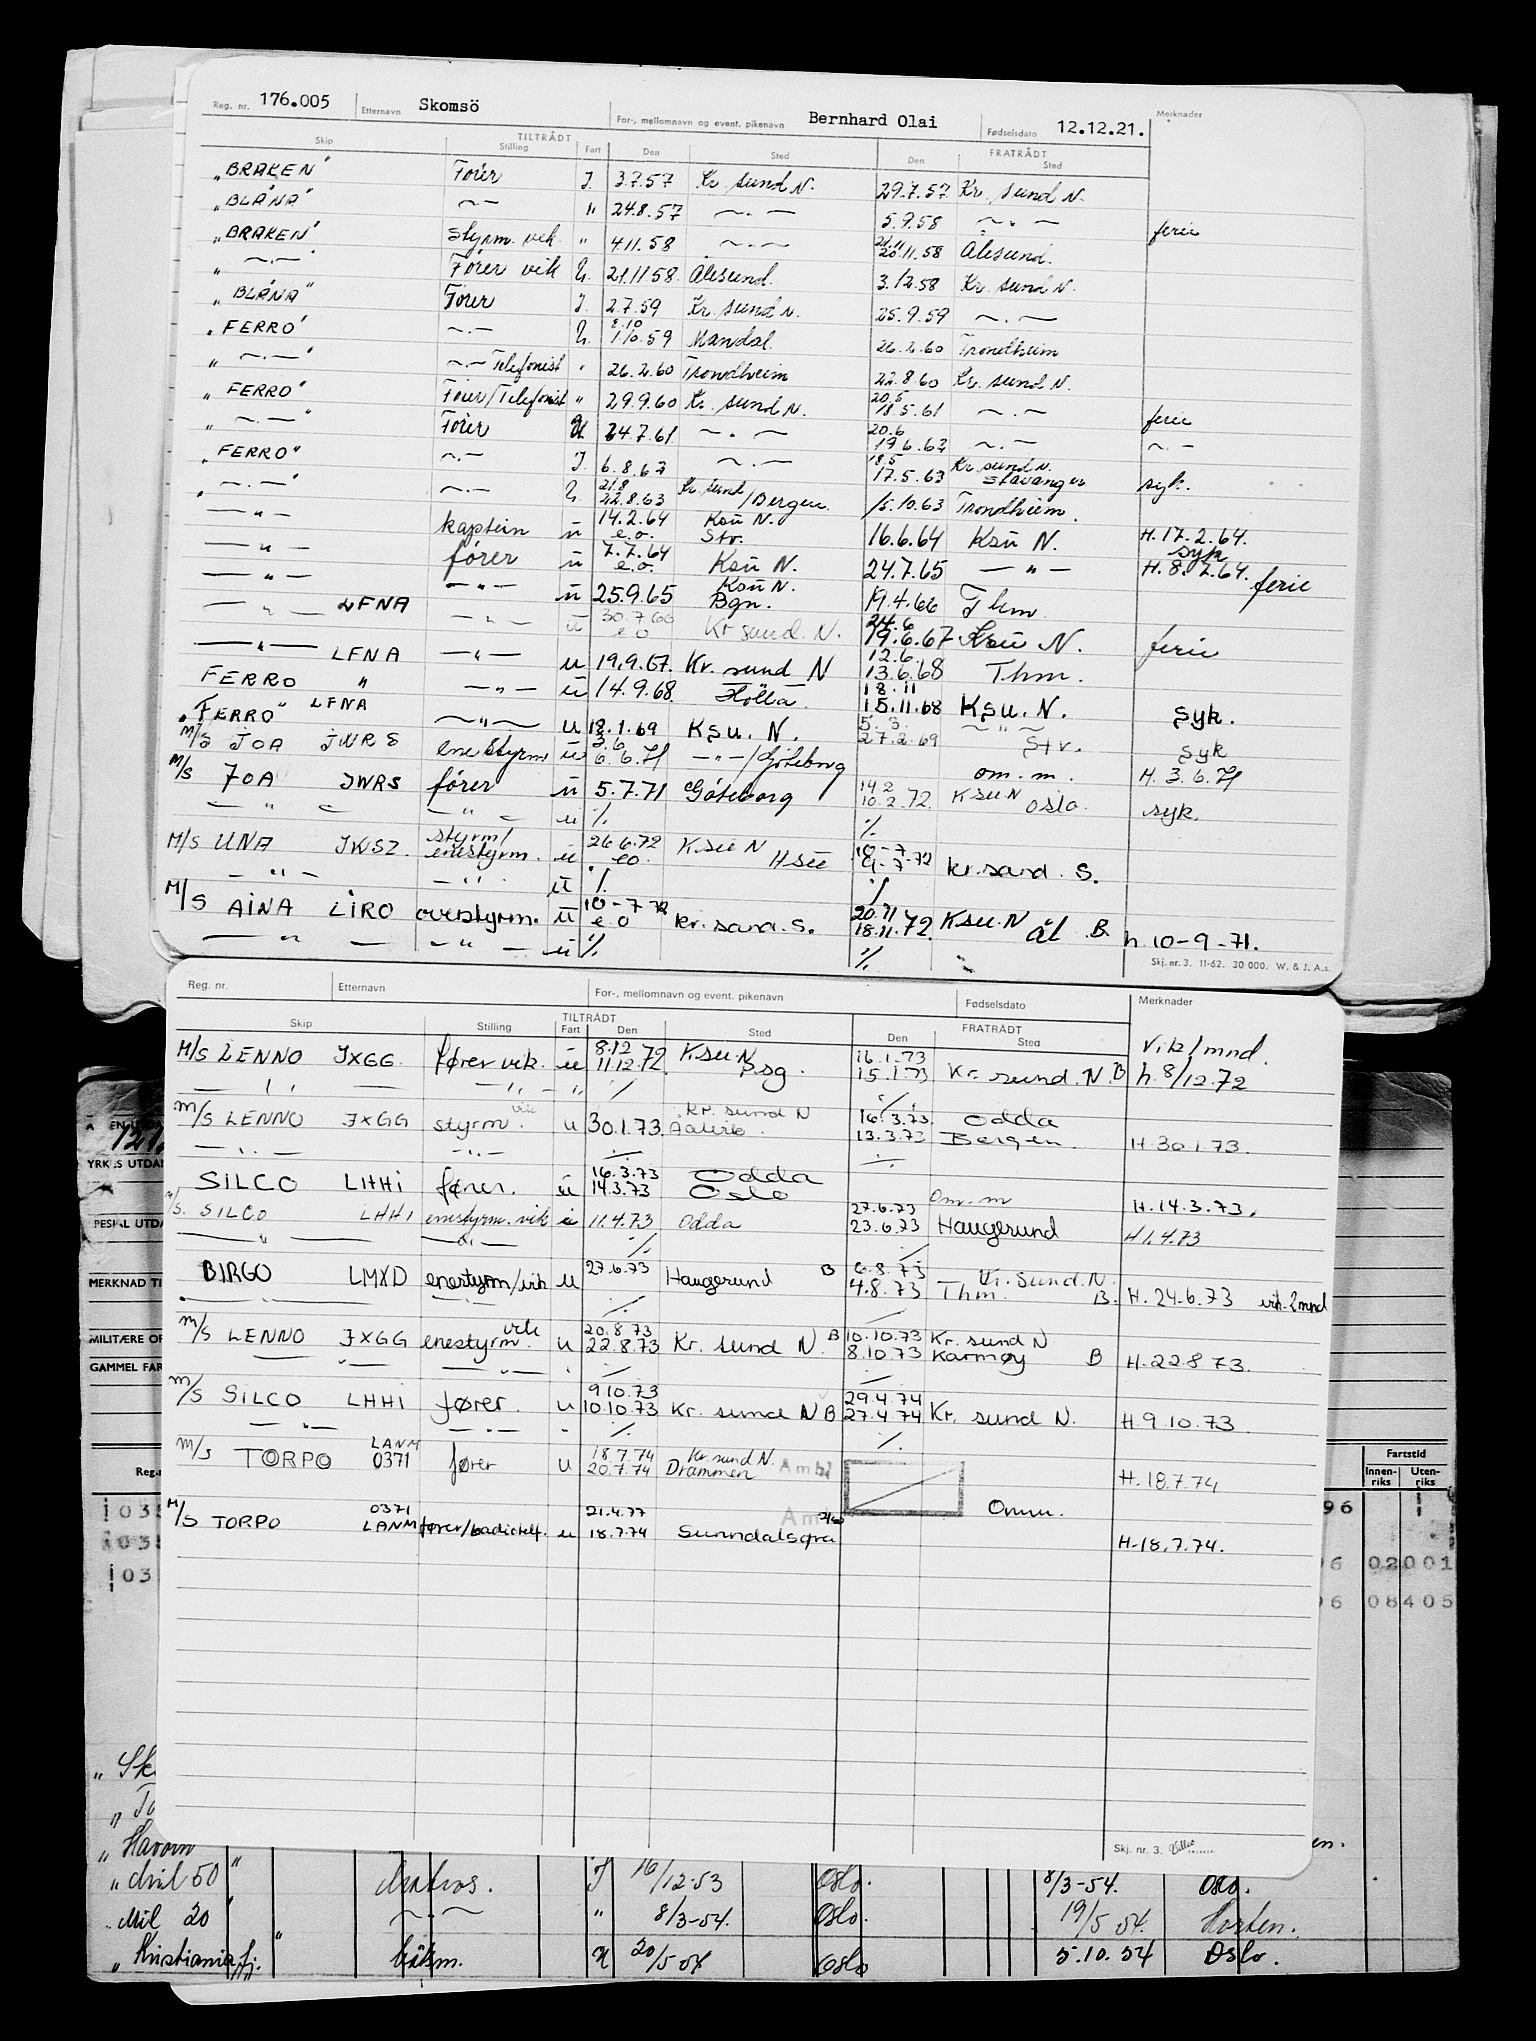 Reg. nr. 176.005 Etternavn Skomsö For-, mellomnavn og event. pikenavn Bernhard Olai Fødselsdato 12.12.21. Merknader
TILTRÅDT FRATRÅDT
Skip Stilling Fart Den Sted Den Sted
"BRAKEN" Fører J. 3.7.57 Kr. sund N. 29.7.57 Kr. sund N.
"BLÅNA" —〃— " 24.8.57 —〃— 5.9.58 —〃— ferie
"BRAKEN" Styrm. vik. " 4.11.58 —〃— 21.11 20.11.58 Ålesund.
"—〃—" Fører vik U. 21.11.58. Ålesund. 3.12.58 Kr. sund N.
"BLÅNA" Fører J. 2.7.59 Kr. sund N. 25.9.59 —〃—
"FERRO" —〃— U. 8.10 1.10.59 Mandal. 26.2.60 Trondheim
"—〃—" —〃— Telefonist " 26.2.60 Trondheim 22.8.60 Kr. sund N.
"FERRO" Fører/Telefonist " 29.9.60 Kr. sund N. 20.5 18.5.61 —〃— ferie
"—〃—" Fører U 24.7.61 —〃— 20.6 19.6.62 —〃— —〃—
"FERRO" —〃— J. 6.8.62 —〃— 18.5 17.5.63 Kr. sund N. Stavanger syk.
"—〃—" —〃— U. 21.8 22.8.63 Kr. sund /Bergen 15.10.63 Trondheim.
—〃— kaptein u 14.2.64 e.o. Ksu N. Stv. 16.6.64 Ksu N. H. 17.2.64. syk
—〃— fører u 7.7.64 e.o. Ksu N. 24.7.65 —〃— H. 8.7.64. ferie
—〃— —〃— u 25.9.65 Ksu N. Bgn. 19.4.66 Thm.
—〃— LFNA —〃— u 30.7.66 e o Kr sund. N. 24.6 19.6.67 Ksu N. ferie
—〃— LFNA —〃— u 19.9.67. Kr. sund N 12.6 13.6.68 Thm.
FERRO " —〃— u 14.9.68. Holla 18.11 15.11.68 Ksu. N. syk.
"FERRO" LFNA —〃— u 18.1.69 Ksu. N. 5.3. 27.2.69 —〃— Stv. syk
M/S JOA JWRS enestyrm u 3.6 6.6.71 —〃—/Göteborg om. m. H. 3.6.71
M/S JOA JWRS fører u 5.7.71 Göteborg 14.2 10.2.72. Ksu N oslo. syk.
—〃— —〃— u ./. ./.
M/S UNA JWSZ. styrm/ enestyrm. u 26.6.72 eo. Ksu N Hsu 10-7 9-7-72 kr.sand. S.
—〃— —〃— u ./. ./.
M/S AINA LIRO overstyrm. u 10-7 72 e o kr. sand. S. 20.11 18.11.72. Ksu. N ål B. h. 10-9-71.
—〃— —〃— u ./. ./.
Skj. nr. 3. 11-62. 30 000. W. & J. A.s.
Reg. nr. Etternavn For-, mellomnavn og event. pikenavn Fødselsdato Merknader
TILTRÅDT FRATRÅDT
Skip Stilling Fart Den Sted Den Sted
M/S LENNO JXGG. fører vik. u 8.12 72 11.12.72. Ksu N Psg. 16.1.73 15.1.73 Kr. sund. N. B Vik 1 mnd. h. 8/12.72
—〃— —〃— ./. ./.
M/S LENNO JXGG styrm. vik u 30.1.73. Kr. sund N 16.3.73. 13.3.73 Odda Bergen. H. 30.1.73.
—〃— —〃— ./. ./.
SILCO LHHI fører. u 16.3.73 14.3.73 Odda Oslo Om. m H. 14.3.73.
M/S. SILCO LHHI enestyrm. vik u 11.4.73 Odda 27.6.73 23.6.73 Haugesund H 1.4.73
—〃— —〃— ./. ./.
BIRGO LMXD enestyrm/vik u 27.6.73 Haugesund B 6.8.73 4.8.73 Kr. Sund. N. Thm. B. H. 24.6.73 vik. 2 mnd
./.
M/S LENNO JXGG enestyrm. vik u 20.8.73 22.8.73 Kr. sund N. B 10.10.73 8.10.73 Kr. sund N Karmøy B H. 22.8 73.
—〃— —〃— ./. ./.
M/S SILCO LHHI fører. u 9.10.73 10.10.73 Kr. sund N B 29.4.74 27.4.74 Kr. sund N. H. 9.10.73
—〃— —〃— ./. ./.
M/S TORPO LANM 0371 fører u 18.7.74 20.7.74 Kr. sund N. Drammen H. 18.7.74
M/S TORPO 0371 LANM fører/ u 21.4.77 18.7.74 Sunndalsøra Omm. H. 18.7.74.
Skj. nr. 3.
YRKES UTDA
MERKNAD TI
MILITÆRE OP
GAMMEL FAR
Fartstid
Reg. Innen-riks Uten-riks
96
6 02001
06 08405
" Havørn "
" dril 50 " Matros. J 16/12.53 Oslo. 8/3-54. Oslo.
" Mil 20 —〃— " 8/3-54. Oslo. 19/5 54. Horten.
" Kristianiafj. " båtsm. U 20/5 54 Oslo 5.10.54 Oslo.